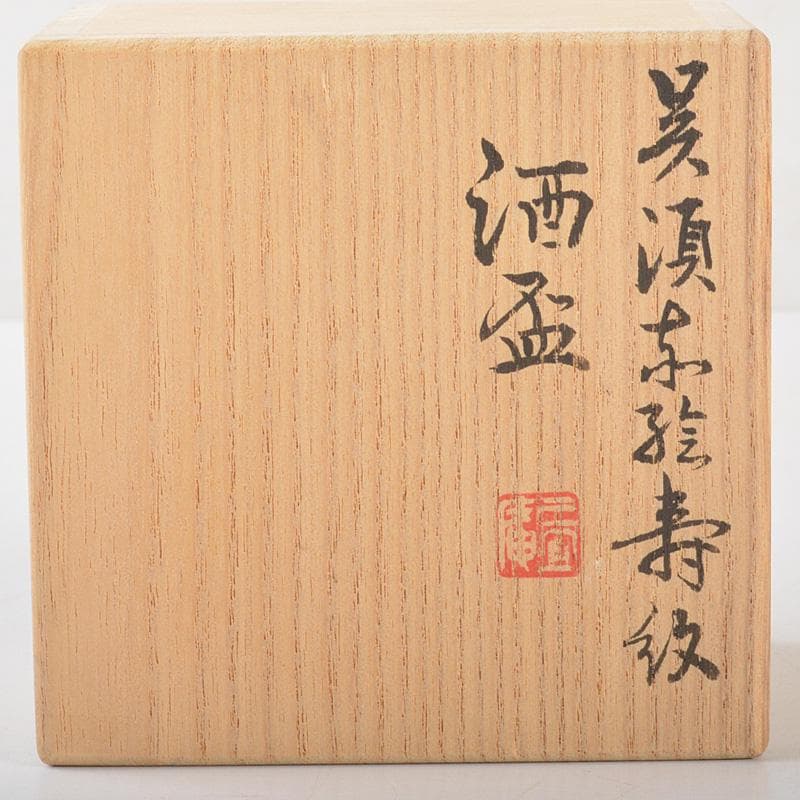 呉須赤絵寿紋
酒盃